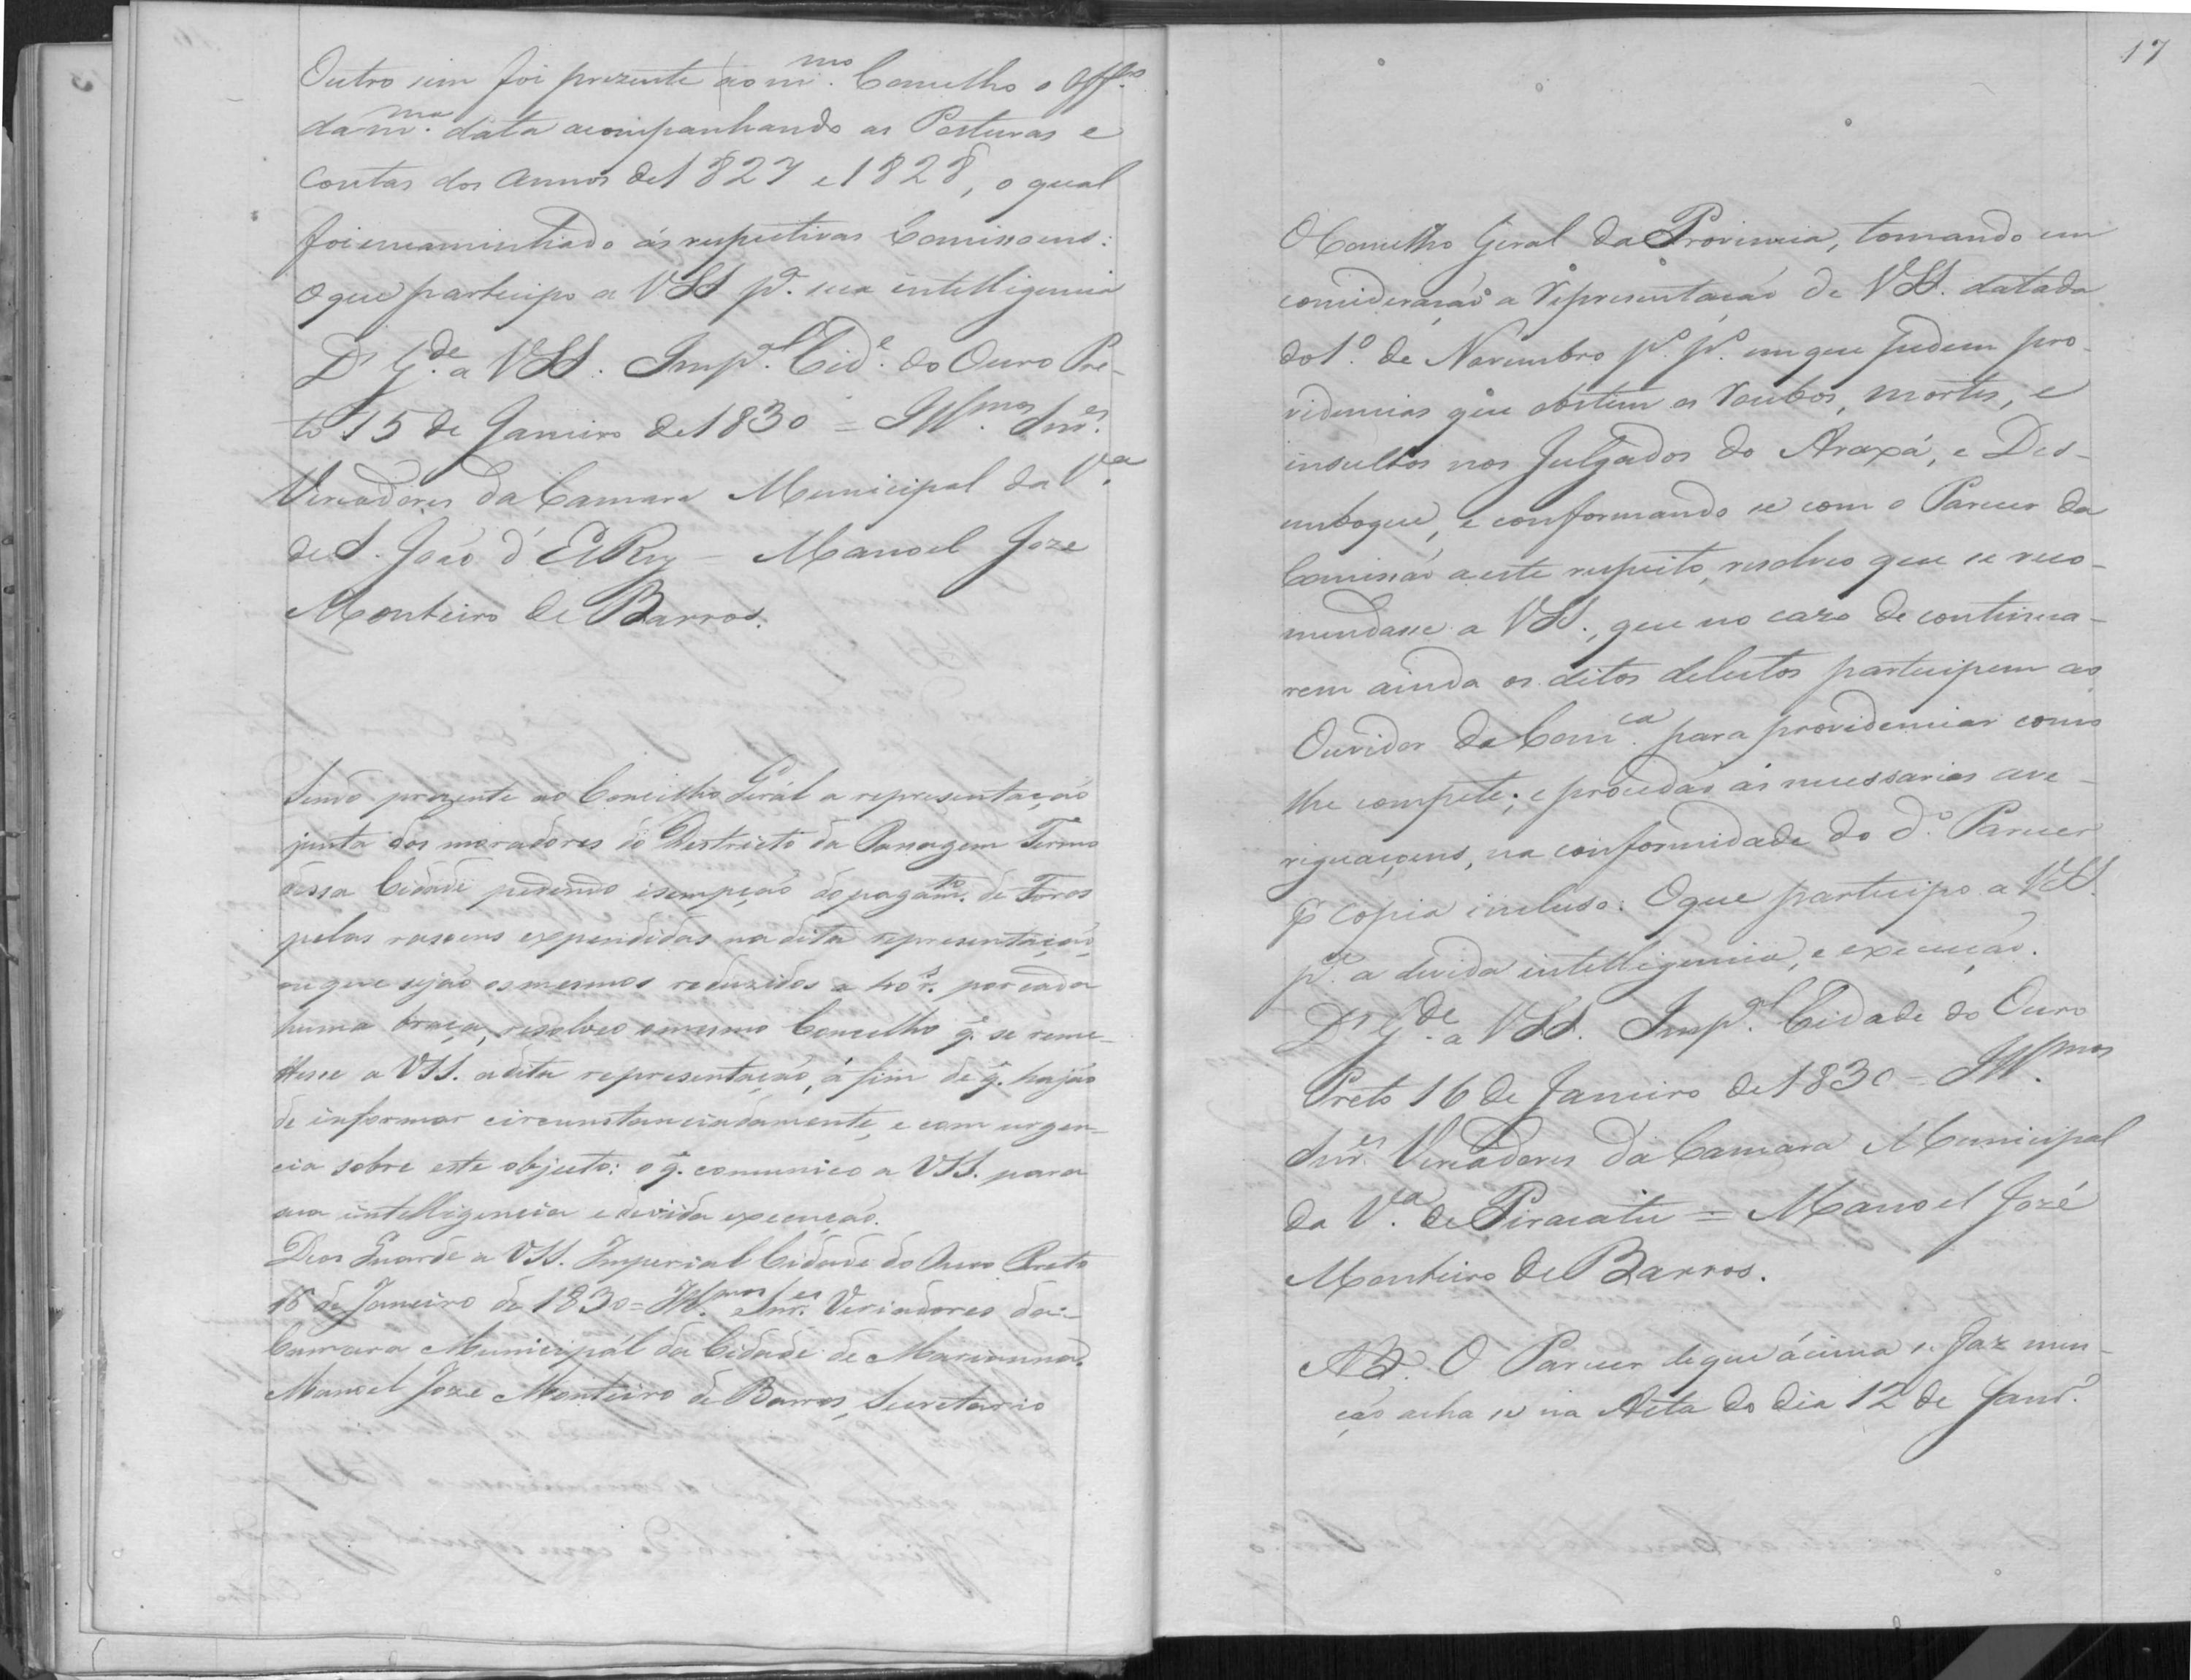 Outro sim foi prezente ao m.mo Conselho o Off.o
da m.ma data acompanhando as Posturas e
Contas dos Annos de 1827 e 1828, o qual
foi encaminhado ás respectivas Comissoens:
O que participo a VSS p.a sua intelligencia
D.s G.de a VSS. Imp.al Cid.e do Ouro Pre-
to 15 de Janeiro de 1830 = Ill.mos Snr.es
Vereadores da Camara Municipal da V.a
de S. João d'El Rey - Manoel Joze
Monteiro de Barros.
Sendo prezente ao Concelho Gerál a representação
junta dos moradores do Destricto da Passagem Termo
dessa Cidade pedindo isempção do pagam.to de Foros
pelas rasoens expendidas na dita representação,
ou que sejão os mesmos reduzidos a 40 r.s por cada
huma braça, resolveo o mesmo Concelho q. se reme-
tesse a VSS. a dita representação, á fim de q. hajão
de informar circunstanciadamente, e com urgen-
cia sobre este objecto: o q. comunico a VSS. para
sua intelligencia e devida execução.
Deos Guarde a VSS. Imperial Cidade do Ouro Preto
16 de Janeiro de 1830 = Ill.mos Snr.es Veriadores da
Camara Municipál da Cidade de Marianna.
Manoel Joze Monteiro de Barros, Secretario
17
O Conselho Geral da Provincia, tomando em
consideração a representação de VSS. datada
do 1.o de Novembro p.o p.o em que pedem pro-
videncias que obstem os roubos, mortes, e
insultos nos Julgados do Araxá, e Des-
emboque, e conformando se com o Parecer da
Comissão a este respeito, resolveo que se reco-
mendasse a VSS., que no cazo de continua-
rem ainda os ditos delictos participem ao
Ouvidor da Com.ca para providenciar como
lhe compete; e procedão ás necessarias ave-
riguaçoens, na conformidade do d.o Parecer
p copia incluso: O que participo a VSS.
p.a a devida intelligencia, e execução.
D.s G.de a VSS. Imp.al Cidade do Ouro
Preto 16 de Janeiro de 1830 = Ill.mos
Snr.es Vereadores da Camara Municipal
da V.a de Piracatu = Manoel Jozé
Monteiro de Barros.
NB. O Parecer de que ácima se faz men-
ção acha se na Acta do dia 12 de Janr.o